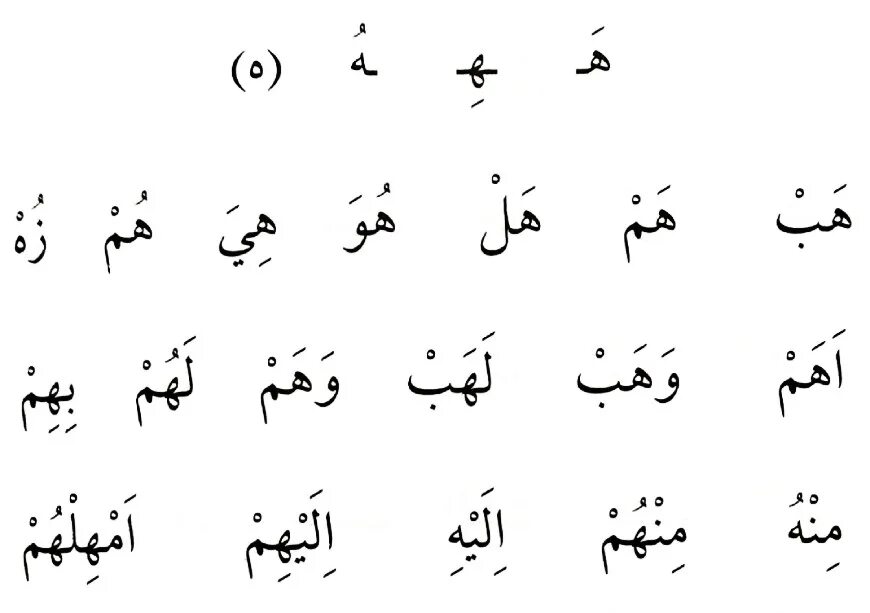 هَـ ـهِـ ـهُ (ه)
هَبْ هَمْ هَلْ هُوَ هِيَ هُمْ زُهْ
اَهَمْ وَهَبْ لَهَبْ وَهَمْ لَهُمْ بِهِمْ
مِنْهُ مِنْهُمْ اِلَيْهِ اِلَيْهِمْ اَمْهِلْهُمْ